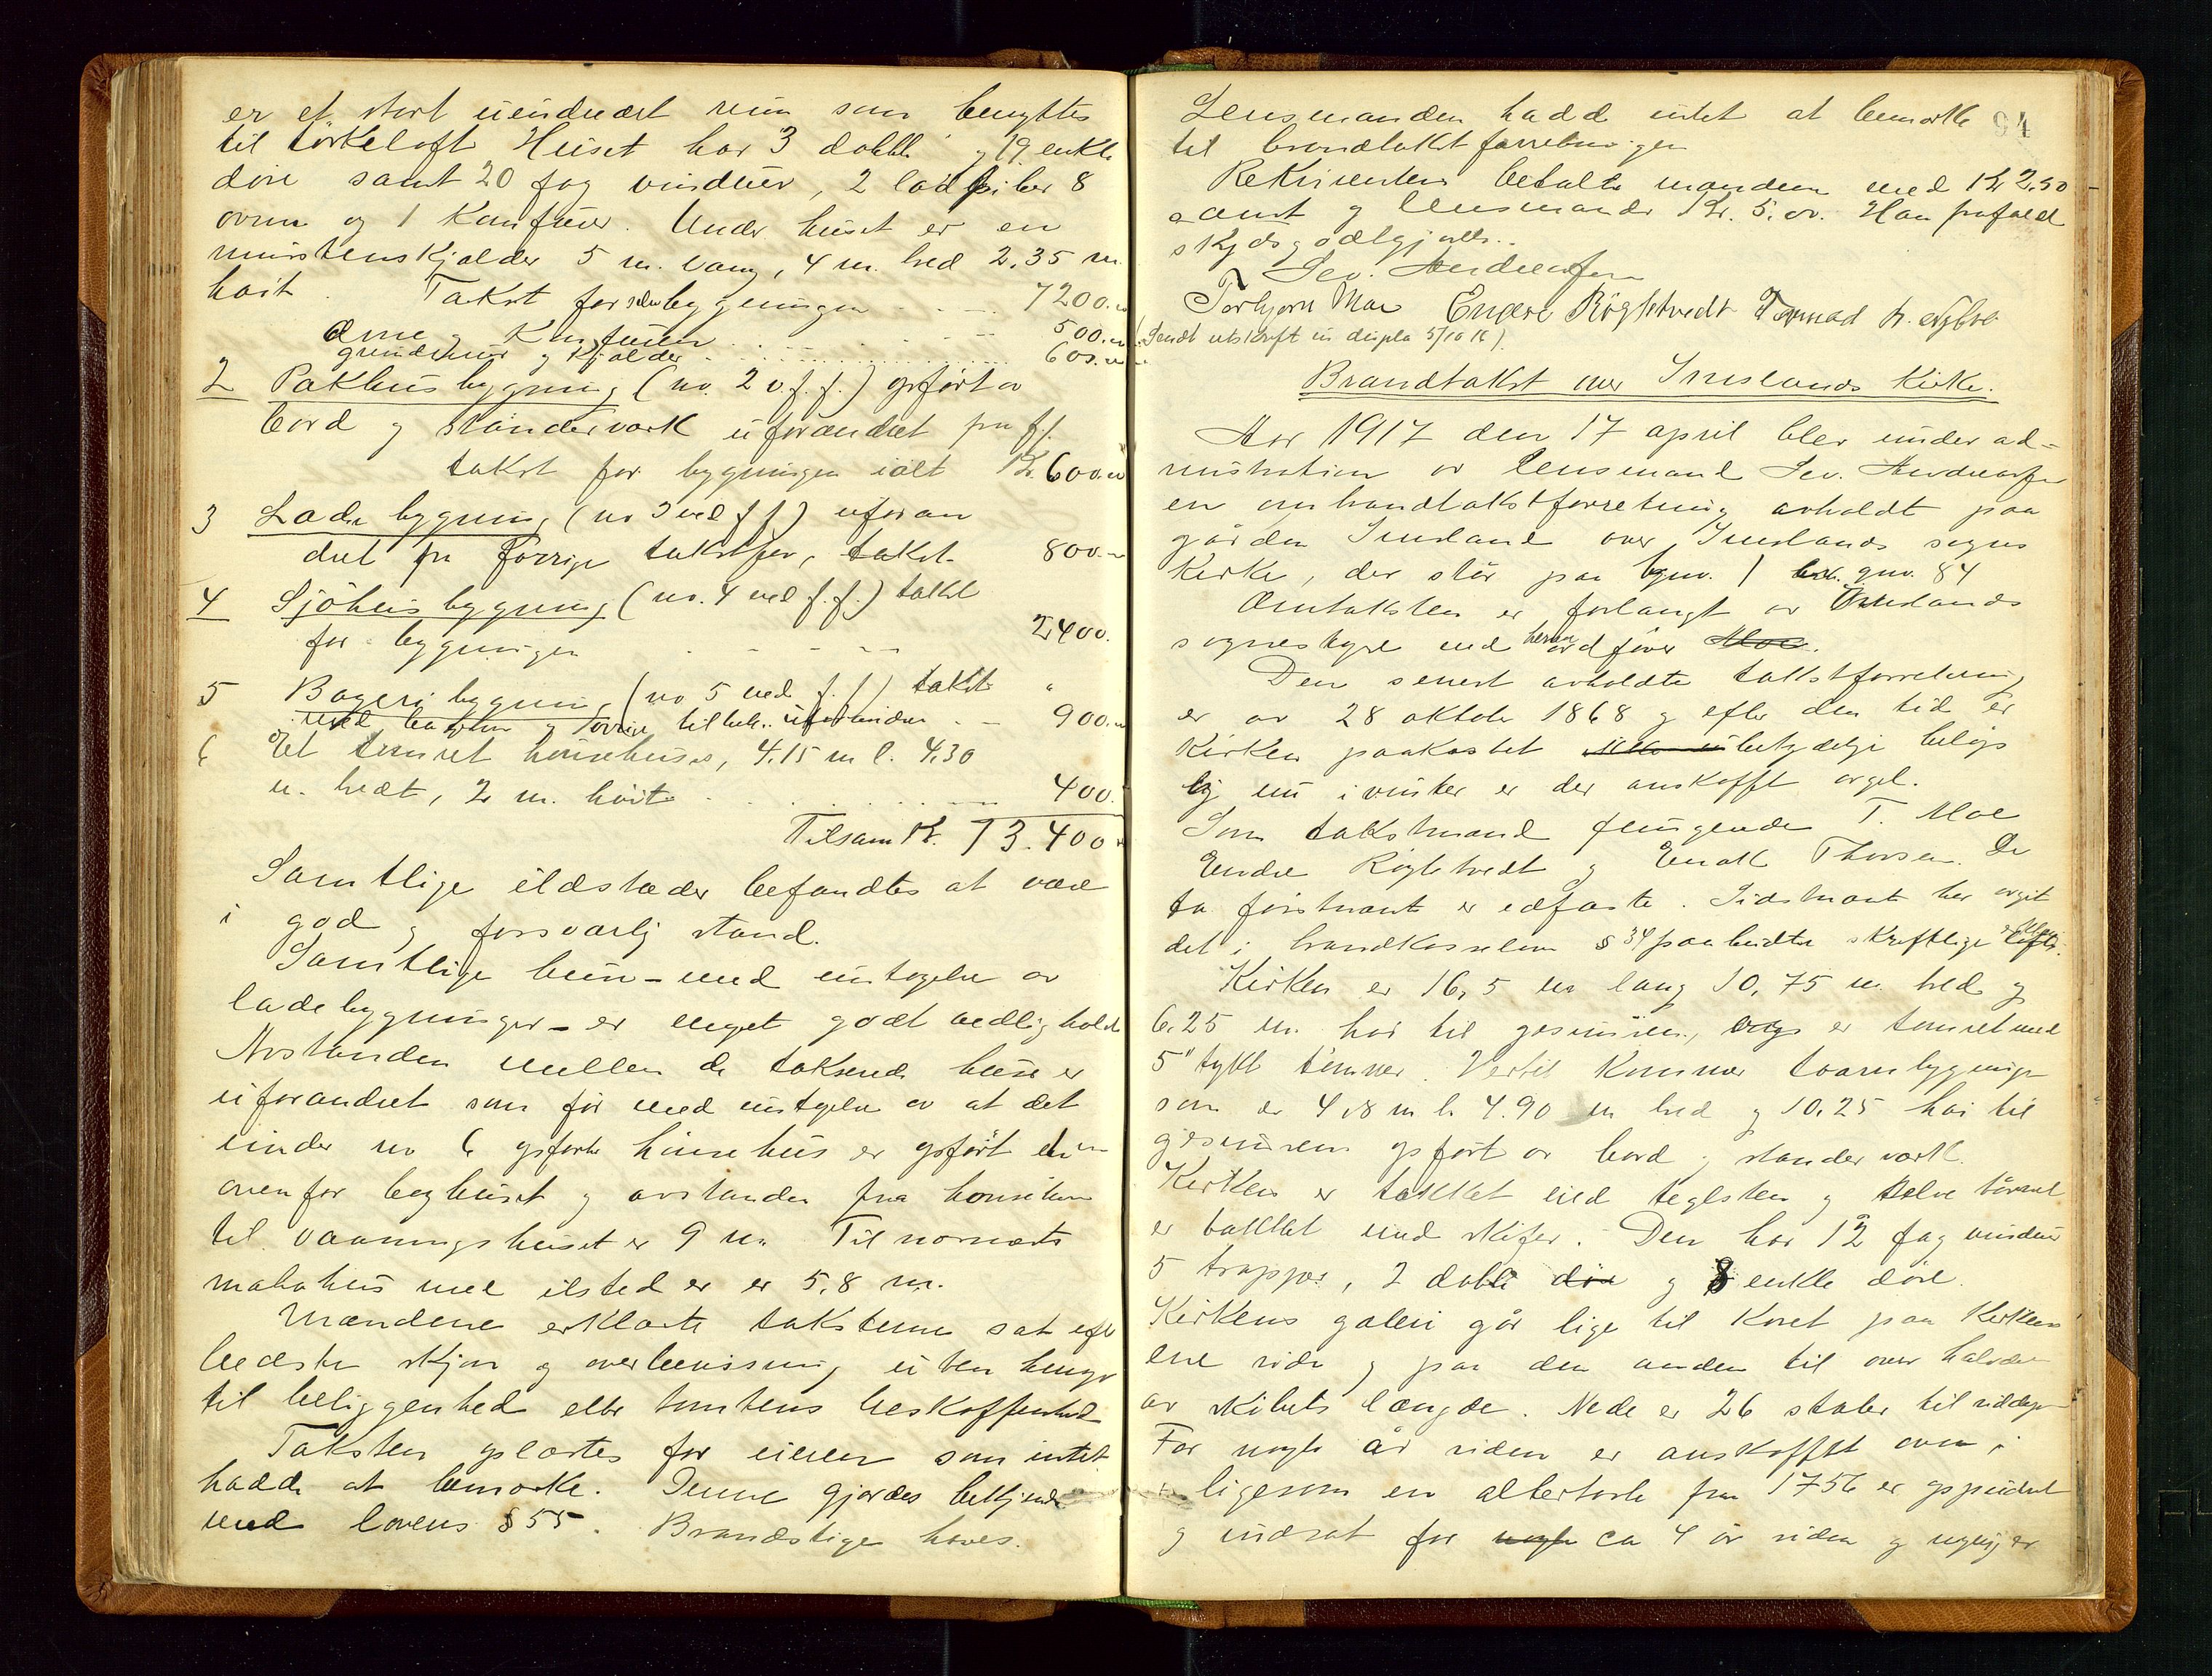 er et stort uindredt rum som benyttes
til tørkeloft Huset har 3 dobble og 19 enkle
döre samt 20 fag vinduer, 2 lodpiber 8
ovne og 1 Komfuer. Under huset er en
murstenskjælder 5 m. lang, 4 m. bred 2,35 m.
høit. Takst for selve bygningen - - - - 7200.
Ovne og Komfuren . . . 500.
grundmur og Kjælder . . . . . . 600.
2 Pakhusbygning (no. 2 v. f. f.) opført av
bord og standerværk uforandret fra f.f.
takst for bygningen ialt Kr. 600.
3 Ladebygning (no 3 ved f f) uforan
dret fra forrige takstforr, takst - 800.-
4 Sjöhusbygning (no. 4 ved f. f.) takst
for bygningen - - - - - 2400.
5 Bageribygning (no 5 ved f. f) takst
med bakerovn og tilbeh. uforandret - - 900.
6 Et tømret hønsehus, 4,15 m l. 4,30
m. bredt, 2 m. höit . . . . . 400.
Tilsam Kr. 13.400
Samtlige ildstæder befandtes at være
i god og forsvarlig stand.
Samtlige huse - med untagelse av
ladebygninger - er meget godt vedligholdt
Avstanden mellem de takserede huse er
uforandret som för med untagelse av at det
under no 6 opførte hönsehus er opfört
ovenfor baghuset og avstanden fra hønsehuset
til vaaningshuset er 9 m. Til nærmeste
nabohus med ilsted er er 5,8 m.
Mændene erklærte taksterne sat efter
bedste skjön og overbevisning uten hensyn
til beliggenhed eller tomtens beskaffenhed
Taksten oplæstes for eieren som intet
hadde at bemærke. Denne gjordes bekjendt
med lovens § 55. Brandstige haves.
Lensmanden hadde intet at bemærke 94
til brandtakstforretningen
Rekvirenten betalte mændene med Kr 2,50 -
samt og lensmanden Kr. 5.00. Han frafaldt
skydsgodtgjørelse.
Sev. Andreassen
Torbjørn Moe Endre Röghetvedt Tormod
(Sendt utskrift in dupla 5/10 16).
Brandtakst over Imslands Kirke.
Aar 1917 den 17 april blev under ad-
ministration av lensmand Sev. Andreassen
en ombrandtakstforretning avholdt paa
gården Imsland over Imslands sogns
Kirke, der står paa bno. 1 gno. 84
Omtaksten er forlangt av Imslands
sognestyre ved herredsordfører Moe.
Den senest avholdte takstforretning
er av 28 oktober 1868 og efter den tid er
Kirken paakostet betydelige beløp
og nu i vinter er der anskafft orgel.
Som takstmænd fungerede T. Moe
Endre Röghetvedt og Enok Thorsen. De
to förstnævnte er edfæste. Sidstnævnte har avgit
det i brandkasseloven § 34 paabudte skriftlige løfte.
Kirken er 16,5 m lang 10,75 m. bred og
6,25 m. höi til gesimsen, væg er tømret med
5" tykt tömmer. Vertil kommer taarnbygningen
som er 4,8 m l. 4.90 m bred og 10,25 høi til
gesimsen opført av bord og standerværk.
Kirken er tækket med teglsten og selve tårnet
er tækket med skifer. Den har 12 fag vinduer
5 trapper, 2 doble döre og 8 enkle döre.
Kirkens galeri går lige til Koret paa Kirkens
ene side og paa den anden til over halvdelen
av skibets længde. Nede er 26 stoler til siddeplads
For nogle år siden er anskafft ovn i
ligesom en altertavle fra 1756 er oppudset
og indsat for ca 4 år siden og nylig er